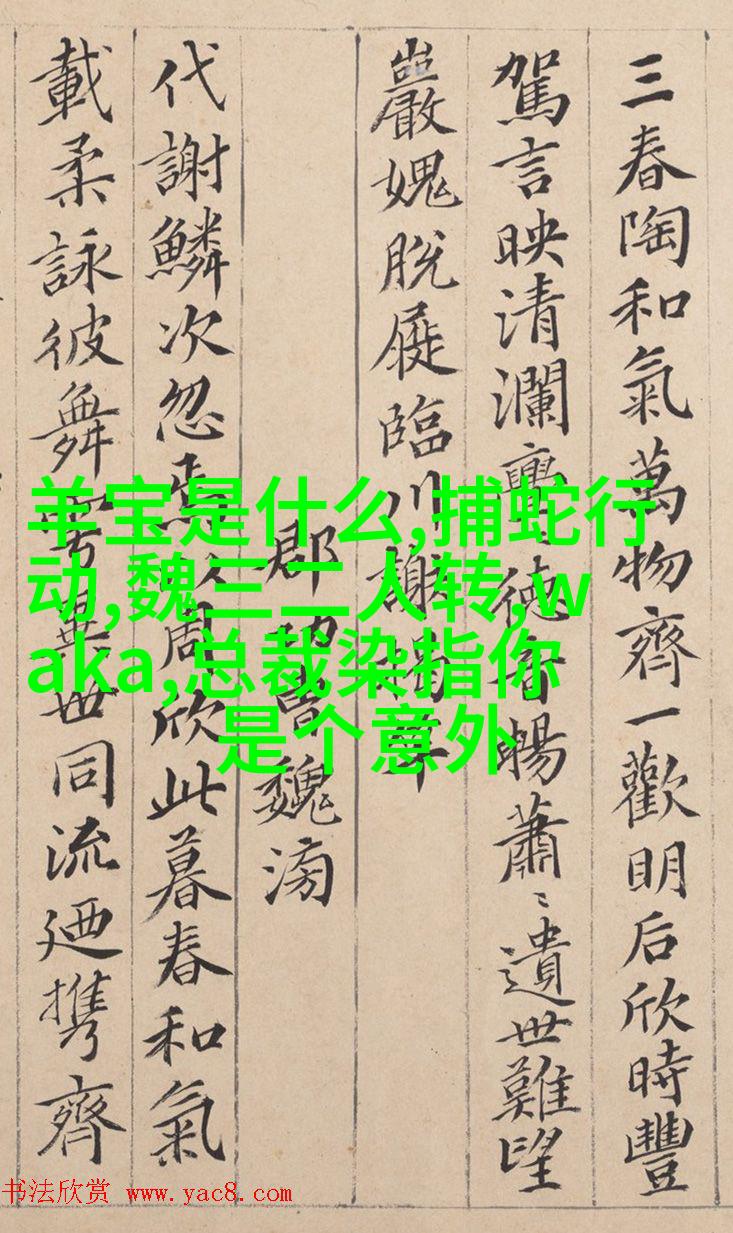 三春陶和氣萬物齊一歡明后欣時豐
駕言映清瀾亹〻德音暢蕭〻遺世難望
巖愧脫屣臨川謝揭竿
郡功曹魏滂
代謝鱗次忽焉以周欣此暮春和氣
載柔詠彼舞雩異世同流迺携齊
羊宝是什么,捕蛇行
动,魏三二人转,w
aka,总裁染指你
是个意外
书法欣赏 www.yac8.com